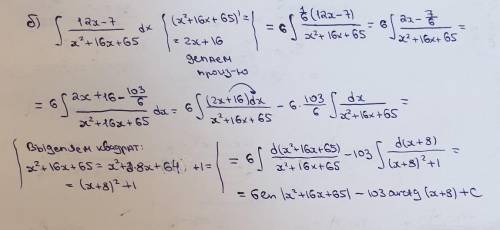 б) ∫ (12x-7)/(x²+16x+65) dx { (x²+16x+65)' = = 2x+16 делаем произ-ю } = 6∫ (1/6 (12x-7))/(x²+16x+65) = 6∫ (2x-7/6)/(x²+16x+65) =
= 6∫ (2x+16-103/6)/(x²+16x+65) dx = 6∫ (2x+16)dx/(x²+16x+65) - 6·103/6 ∫ dx/(x²+16x+65) =
{ Выделяем квадрат:
x²+16x+65 = x²+2·8x+64; +1 =
= (x+8)²+1 } = 6∫ d(x²+16x+65)/(x²+16x+65) - 103∫ d(x+8)/((x+8)²+1) =
= 6ln |x²+16x+65| - 103 arctg (x+8) + C